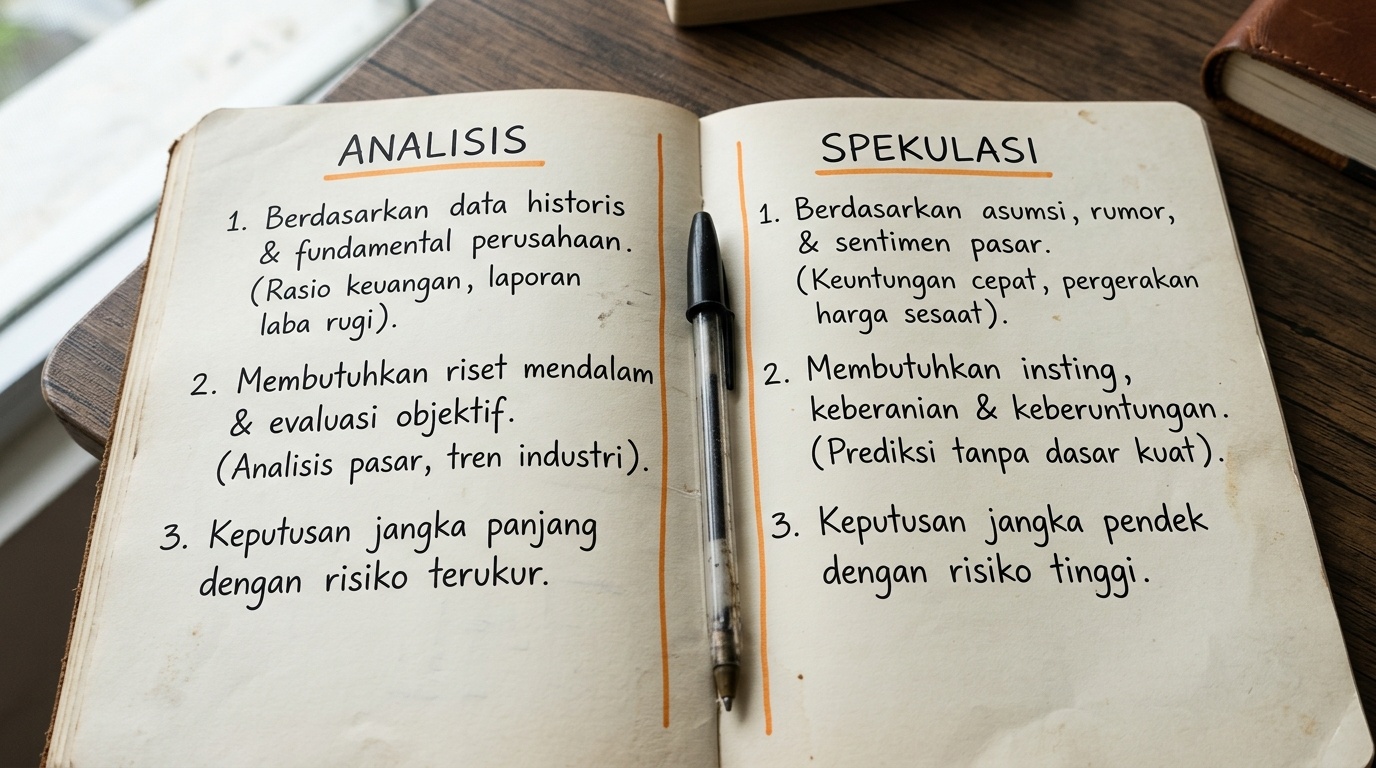 ANALISIS
1. Berdasarkan data historis
& fundamental perusahaan.
(Rasio keuangan, laporan
laba rugi).
2. Membutuhkan riset mendalam
& evaluasi objektif.
(Analisis pasar, tren industri).
3. Keputusan jangka panjang
dengan risiko terukur.
SPEKULASI
1. Berdasarkan asumsi, rumor,
& sentimen pasar.
(Keuntungan cepat, pergerakan
harga sesaat).
2. Membutuhkan insting,
keberanian & keberuntungan.
(Prediksi tanpa dasar kuat).
3. Keputusan jangka pendek
dengan risiko tinggi.